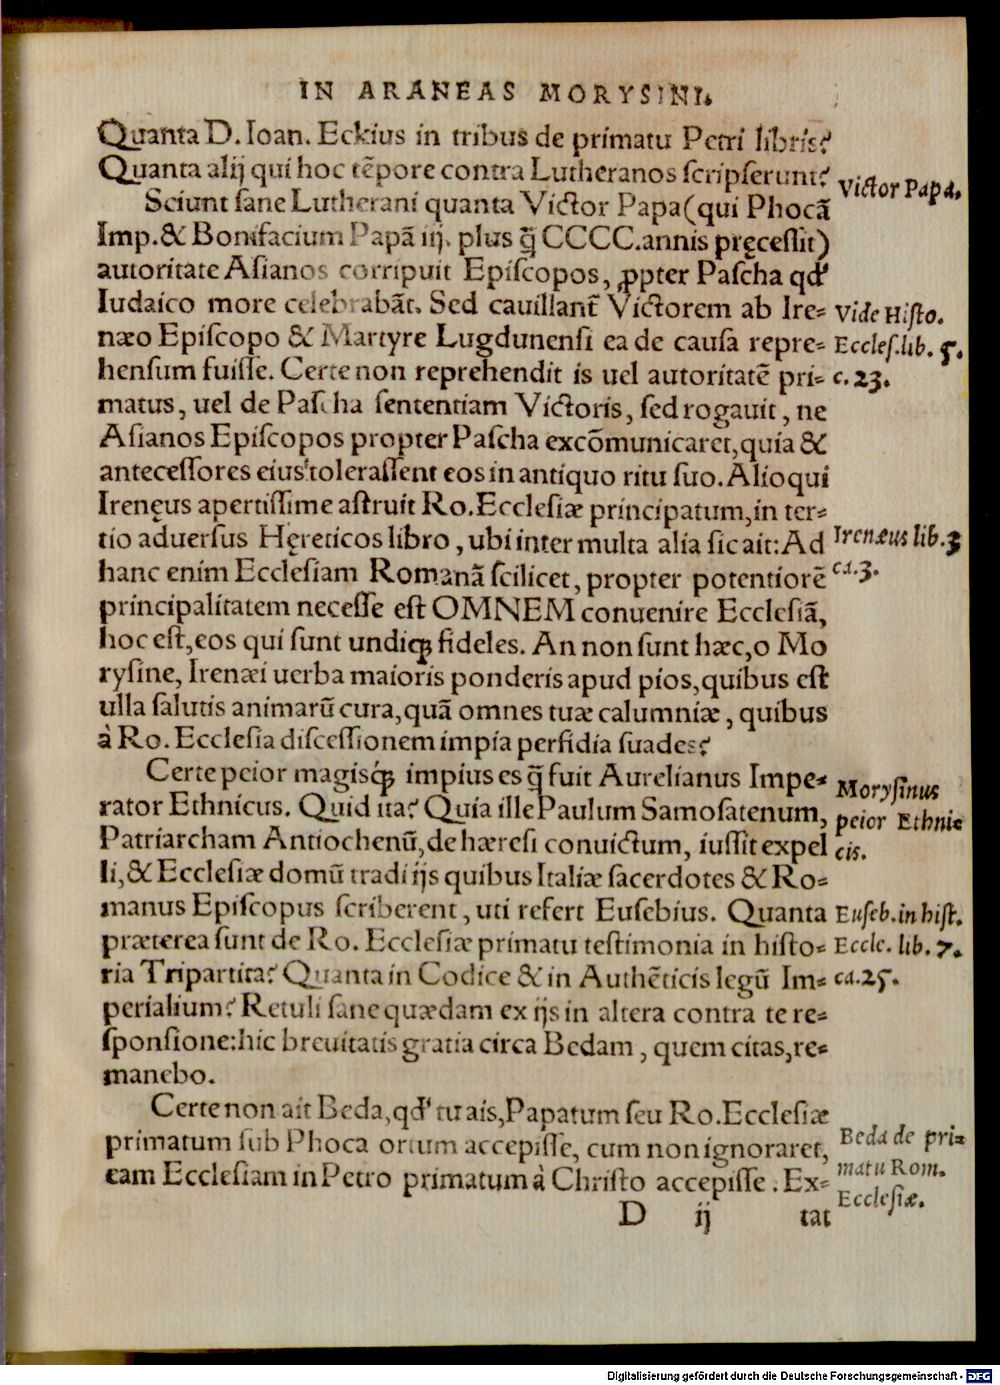 IN ARANEAS MORYSINI.
Quanta D. Ioan. Eckius in tribus de primatu Petri libris?
Quanta alij qui hoc tẽpore contra Lutheranos scripserunt?
Victor Papa.
Sciunt sane Lutherani quanta Victor Papa (qui Phocã
Imp. & Bonifacium Papã iij. plus q̃ CCCC. annis pręcessit)
autoritate Asianos corripuit Episcopos, ꝓpter Pascha qđ
Iudaico more celebrabãt. Sed cauillant̃ Victorem ab Ire-
Vide Histo.
næo Episcopo & Martyre Lugdunensi ea de causa repre-
Eccles. lib. 5.
hensum fuisse. Certe non reprehendit is uel autoritatẽ pri-
c. 23.
matus, uel de Pascha sententiam Victoris, sed rogauit, ne
Asianos Episcopos propter Pascha excõmunicaret, quia &
antecessores eius tolerassent eos in antiquo ritu suo. Alioqui
Irenęus apertissime astruit Ro. Ecclesiæ principatum, in ter-
tio aduersus Hęreticos libro, ubi inter multa alia sic ait: Ad
Irenæus lib. 3
hanc enim Ecclesiam Romanã scilicet, propter potentiorẽ
ca. 3.
principalitatem necesse est OMNEM conuenire Ecclesiã,
hoc est, eos qui sunt undiqꝫ fideles. An non sunt hæc, o Mo
rysine, Irenæi uerba maioris ponderis apud pios, quibus est
ulla salutis animarũ cura, quã omnes tuæ calumniæ, quibus
à Ro. Ecclesia discessionem impia perfidia suades?
Certe peior magisqꝫ impius es q̃ fuit Aurelianus Impe-
Morysinus
rator Ethnicus. Quid ita? Quia ille Paulum Samosatenum,
peior Ethni-
Patriarcham Antiochenũ, de hæresi conuictum, iussit expel
cis.
li, & Ecclesiæ domũ tradi ijs quibus Italiæ sacerdotes & Ro-
manus Episcopus scriberent, uti refert Eusebius. Quanta
Euseb. in hist.
præterea sunt de Ro. Ecclesiæ primatu testimonia in histo-
Eccle. lib. 7.
ria Tripartita? Quanta in Codice & in Authẽticis legũ Im-
ca. 25.
perialium? Retuli sane quædam ex ijs in altera contra te re-
sponsione: hic breuitatis gratia circa Bedam, quem citas, re-
manebo.
Certe non ait Beda, qđ tu ais, Papatum seu Ro. Ecclesiæ
primatum sub Phoca ortum accepisse, cum non ignoraret,
Beda de pri-
eam Ecclesiam in Petro primatum à Christo accepisse. Ex-
matu Rom.
Ecclesiæ.
D ij tat
Digitalisierung gefördert durch die Deutsche Forschungsgemeinschaft - DFG